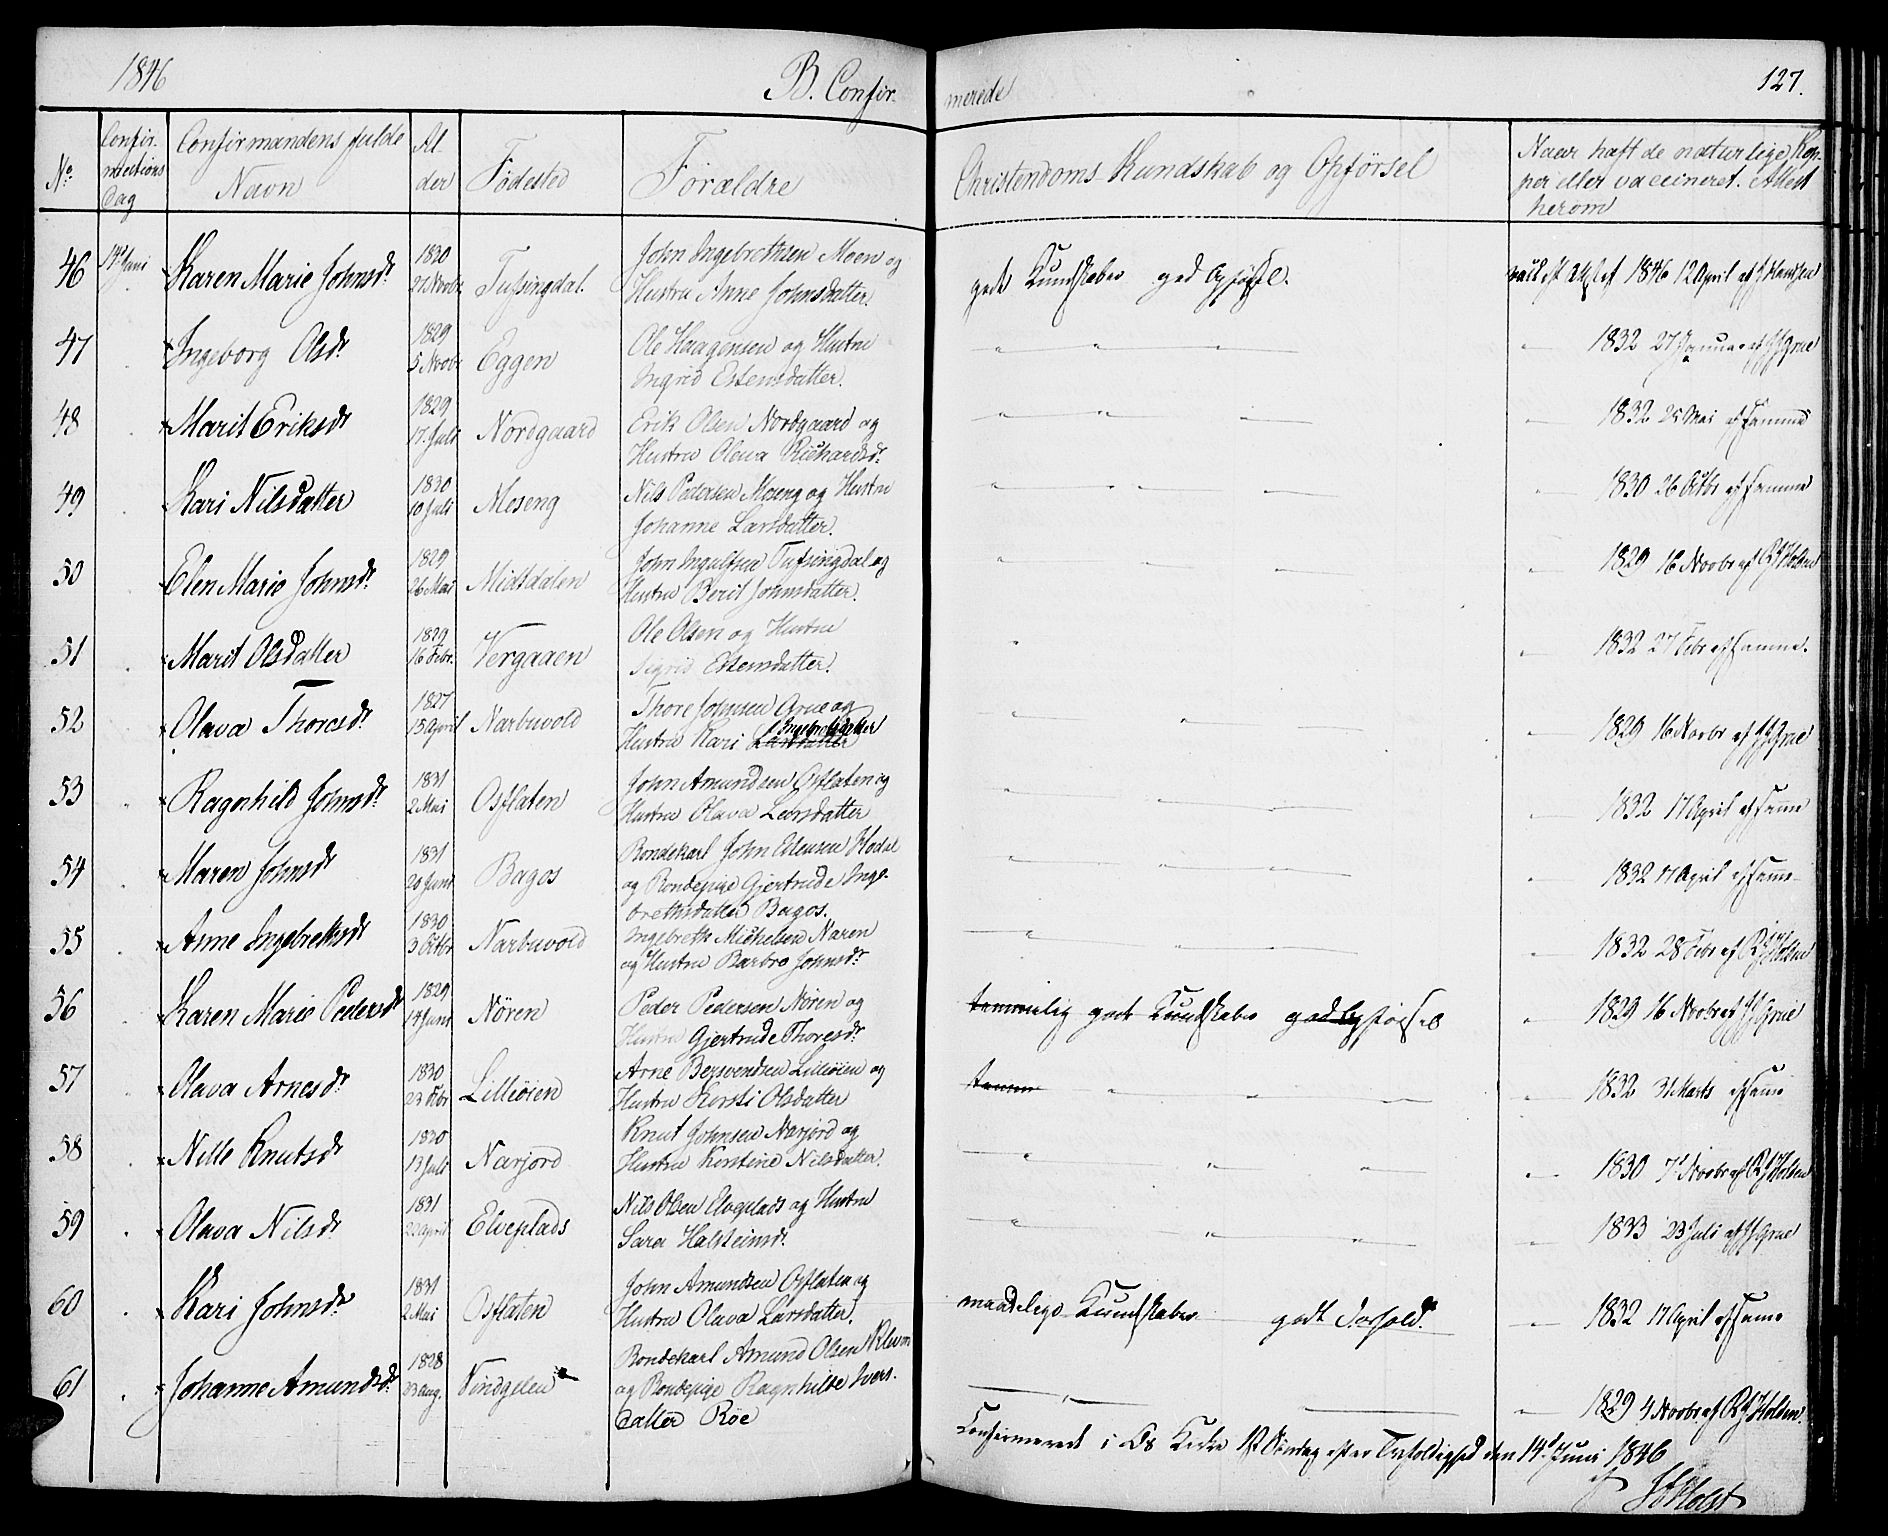 1846 B. Confir- merede 127.
No. Confirmations Dag Confirmandens fulde Navn Alder Fødested Forældre Christendoms Kundskab og Opførsel Naar haft de naturlige Kopper eller vaccineret. Attest herom
46 14de Juni Karen Marie Johnsdr 1830 Tufsingdal. John Ingebrethsen Moen og
Hustru Anne Johnsdatter. gode Kundskaber god Opførsel. 1846 12 April af
47 Ingeborg Olsdr 1829 5 Novbr Eggen Ole Haagensen og Hustru
Ingrid Estensdatter. " " " " 1832 27 Januar af Grue
48 Marit Eriksdr 1829 17. Juli Nordgaard Erik Olsen Nordgaard og
Hustru Olava Richardsdr. " " " " 1832 25 Mai af samme
49 Kari Nilsdatter 1830 10 Juli Moseng Nils Pedersen Moseng og Hustru
Johanne Larsdatter. " " " " 1830 26 Octbr af samme
50 Elen Marie Johnsdr. 1829 26 Mai Midtdalen John Ingulfsen Tufsingdal og
Hustru Berit Johnsdatter. " " " " 1829 16 Novbr af Holden
51 Marit Olsdatter 1829 16 Febr. Vergaaen Ole Olsen og Hustru
Sigrid Estensdatter. " " 1832 27 Febr af samme.
52 Olava Thoresdr 1827 15 April Narbuvold Thore Johnsen Grue og
Hustru Kari Larsdatter Ingebretsdatter " " " 1829 16 Novbr af Grue
53 Ragnhild Johnsdr 1831 2 Mai Osflaten John Amundsen Osflaten og
Hustru Olava Larsdatter " " " " 1832 17 April af samme
54 Maren Johnsdr 1831 20 Juni Bagos Bondekarl John Estensen Hodal
og Bondepige Gjertrude Inge-
brethsdatter Bagos. " " " " 1832 17 April af samme
55 Anne Ingebrethsdr 1830 3 Octbr Narbuvold Ingebreth Michelsen Naren
og Hustru Barbro Johnsdr " " " " 1832 28 Febr af Holden
56 Karen Marie Pedersdr 1829 14 Juni Nören Peder Pedersen Nören og
Hustru Gjertrude Thoresdr temmelig gode Kundskaber god Opførsel " 1829 16 Novbr af Grue
57 Olava Arnesdr 1830 23 Febr Lilleöien Arne Bersvendsen Lilleöien og
Hustru Kersti Olsdatter temm " " " " 1832 31 Marts af samme
58 Nille Knutsdr 1830 13 Juli Narjord Knut Johnsen Narjord og
Hustru Kerstine Nilsdatter. " " " " 1830 7 Novbr af Holden
59 Olava Nilsdr 1831 22 April Elveplads Nils Olsen Elveplads og Hustru
Sara Halsteinsdr. " " " " 1833 23 Juli af Grue
60 Kari Johnsdr 1831 2 Mai Osflaten John Amundsen Osflaten og
Hustru Olava Larsdatter. maadelige Kundskaber godt Forhold. " 1832 17 April af samme
61 Johanne Amundsdr. 1828 23 Aug. Bondekarl Amund Olsen
og Bondepige Ragnhilde Ivers-
datter Röe " " 1829 4 Novbr. af Holden.
Confirmerede i Os Kirke 1st Søndag efter Trefoldighed den 14de Juni 1846
af Holst